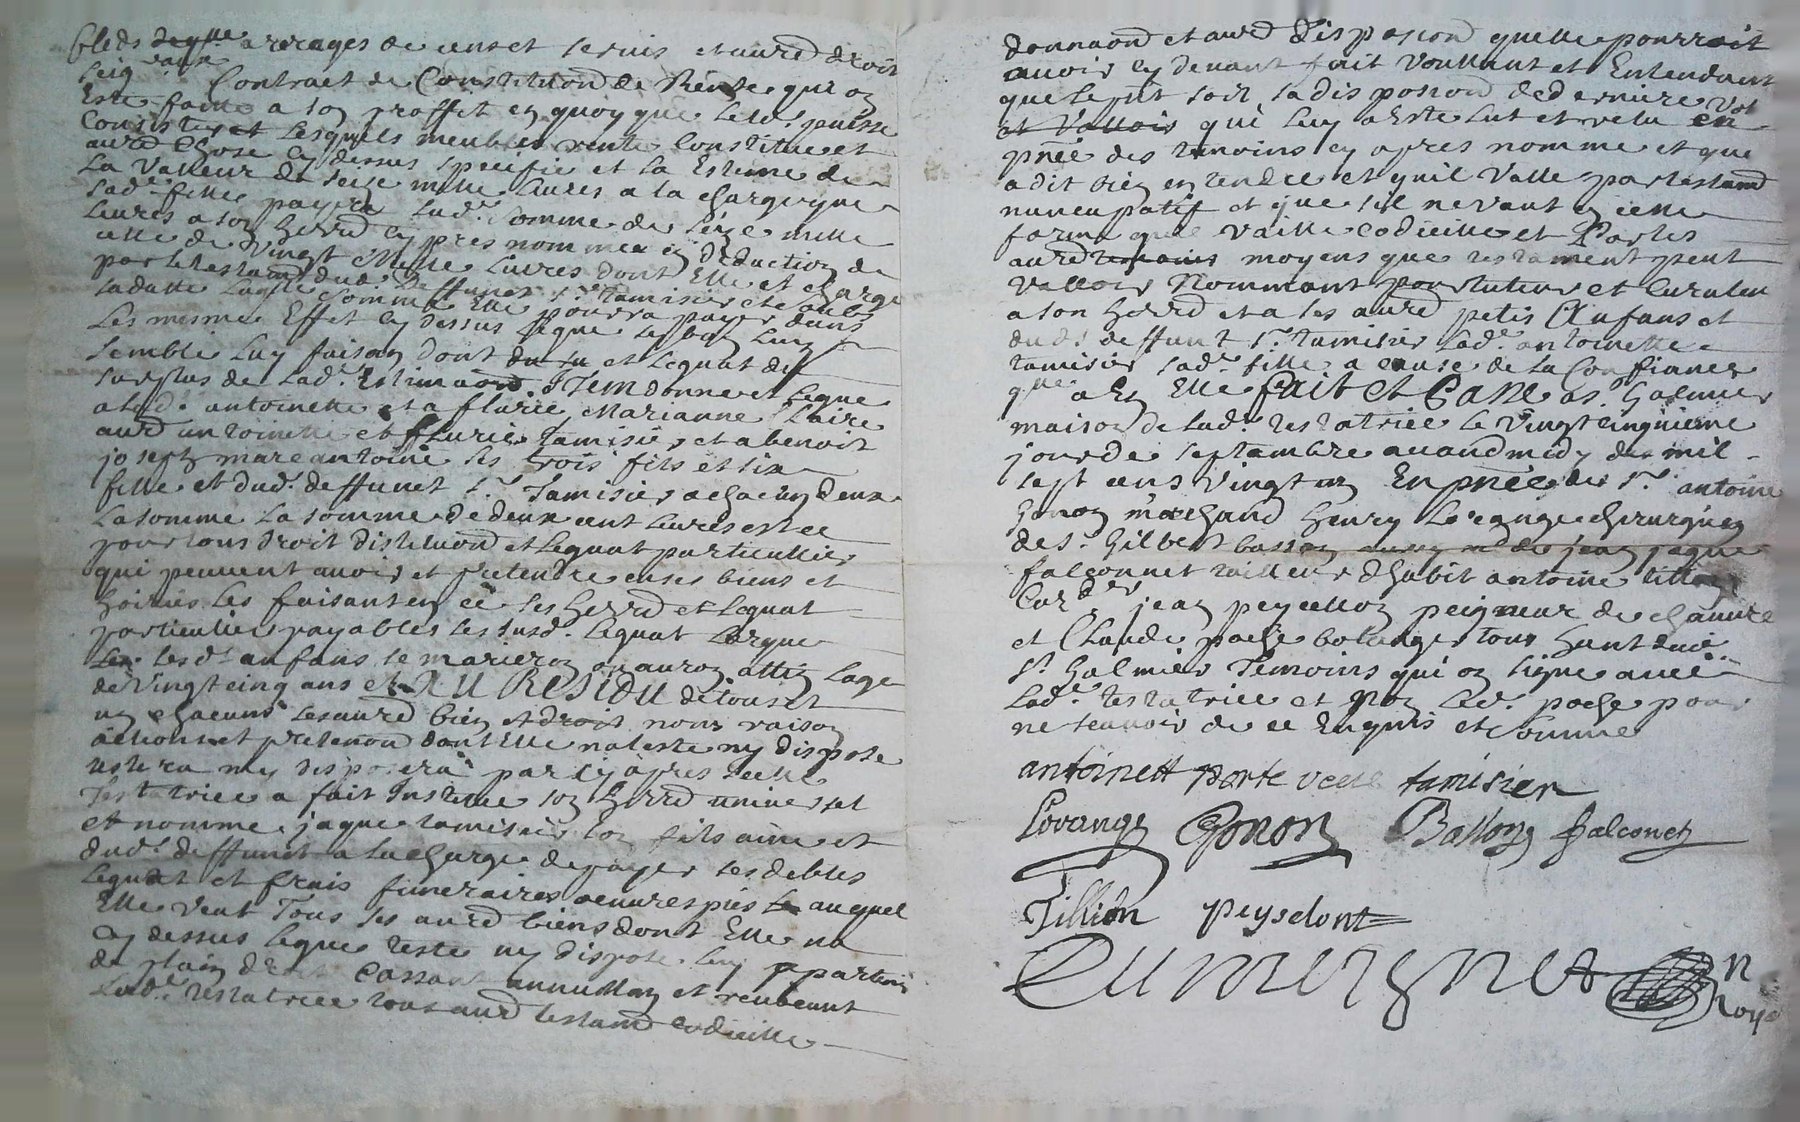 bleds arrerages de cens et servis et autre droit
seig.aux Contract de Constitution de Rente qui on
Este faitte a son proffit en quoy que le tout puisse
Consister et lesquels meubles rente Constitue et
autre chose cy dessus specifie et la Estime de
La Valleur de seise mille livres a la charge que
sad.e fille payera lad.e somme de seize mille
livres a son herd cy pres nommer en deduction de
celle de Vingt Mille Livres dont Elle et charge
par le testamt dud. deffunct s.r tamisier et de
laditte somme Elle pourra payer dans
Les mesme Effet cy dessus legue si bon luy
semble Luy faisan dont du su et Lequat du
surplus de Lad.e Estimaond Item donne et legue
a lad.e antoinette et a flurie Marianne Claire
aurd antoinette et fflurie tamisier et a benoit
joseph marc antoine ses trois fils et six
fille et dud. deffunct s.r Tamisier a chacun deux
La somme La somme de deux cent Livres et ce
pour tous droit distituond et Lequat particullier
qui peuvent avoir et pretendre en ses biens et
hoiries les faisant en ce ses herrd et Lequat
particulier payables les susd. lequat Lorque
lesd.t anfans se marieron ou auron attin Lage
de Vingt cinq ans et AU RESIDU de tous et
un chacuns ses aurd bien et droit nom raison
actions et pretenond dont Elle na teste ny dispose
testera ny disposera par cy apres Ladite
Testatrice a fait Institue son herrd universel
et nomme jaque tamisier son fils aine et
dud.t deffunct a la charge de payer ses debtes
Lequat et frais funeraires oeuvres pies auquel
Elle veut Tous ses aurd biens dont Elle na
cy dessus legue teste ny dispose luy appartenir
de plain droit Cassant annullan et revocant
Lad.e testatrice tous aurd testamd codicille
donnaond et aurd disposiond quelle pourroit
avoir cy devant fait Voullant et Entendant
que le pnt soit sa disposiond de derniere vol
et Valloir qui luy a Este lut et relu en
pnee des temoins cy apres nomme et que
a dit bien entendre et quil Valle par testamd
nuncupatif et que sil ne Vaut en cette
forme quil Vaille codicille et Par les
aurd moyens que testament peut
Valloir Nommant pour tuteur et Curateur
a son herrd et a ses aurd petis Anfans et
dud.t deffunt s.r tamisier Lad.e antoinette
tamisier sad.e fille a cause de la Confiance
que a En Elle fait et Passe a s.t Galmier
maison de Lad.e testatrice le Vingt cinquieme
jour de septambre avand midy de mil
sept cens Vingt un En pnee de s.r antoine
Gonon marchand henry Lorange chirurgien
de s.r Gilbert jean jaque
falconnet tailleur d'habit antoine tillon
Cord.er jean peycellon peigneur de chanvre
et Claude poche bolanger tous habt dud.
s.t Galmier Temoins qui on signe avec
Lad.e testatrice et non led. poche pour
ne scavoir de ce Enquis et somme
antoinett porte veuve tamisier
Lorange Gonon Balloy falconet
Tillion peyselont
n
roya